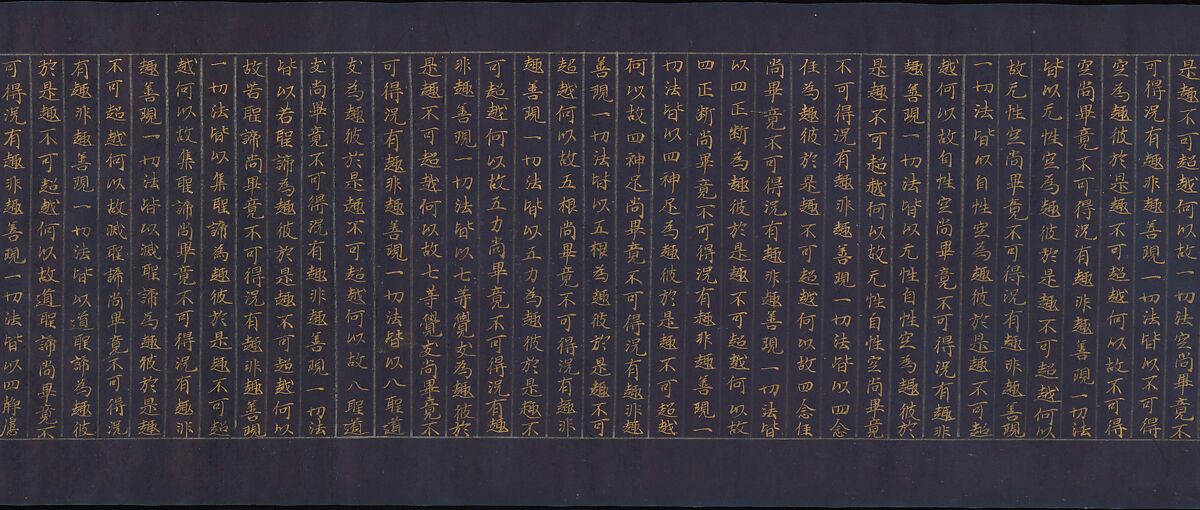 是趣不可超越何以故一切法空尚畢竟不
可得況有趣非趣善現一切法皆以不可得
空為趣彼於是趣不可超越何以故不可得
空尚畢竟不可得況有趣非趣善現一切法
皆以无性空為趣彼於是趣不可超越何以
故无性空尚畢竟不可得況有趣非趣善現
一切法皆以自性空為趣彼於是趣不可超
越何以故自性空尚畢竟不可得況有趣非
趣善現一切法皆以无性自性空為趣彼於
是趣不可超越何以故无性自性空尚畢竟
不可得況有趣非趣善現一切法皆以四念
住為趣彼於是趣不可超越何以故四念住
尚畢竟不可得況有趣非趣善現一切法皆
以四正斷為趣彼於是趣不可超越何以故
四正斷尚畢竟不可得況有趣非趣善現一
切法皆以四神足為趣彼於是趣不可超越
何以故四神足尚畢竟不可得況有趣非趣
善現一切法皆以五根為趣彼於是趣不可
超越何以故五根尚畢竟不可得況有趣非
趣善現一切法皆以五力為趣彼於是趣不
可超越何以故五力尚畢竟不可得況有趣
非趣善現一切法皆以七等覺支為趣彼於
是趣不可超越何以故七等覺支尚畢竟不
可得況有趣非趣善現一切法皆以八聖道
支為趣彼於是趣不可超越何以故八聖道
支尚畢竟不可得況有趣非趣善現一切法
皆以苦聖諦為趣彼於是趣不可超越何以
故苦聖諦尚畢竟不可得況有趣非趣善現
一切法皆以集聖諦為趣彼於是趣不可超
越何以故集聖諦尚畢竟不可得況有趣非
趣善現一切法皆以滅聖諦為趣彼於是趣
不可超越何以故滅聖諦尚畢竟不可得況
有趣非趣善現一切法皆以道聖諦為趣彼
於是趣不可超越何以故道聖諦尚畢竟不
可得況有趣非趣善現一切法皆以四靜慮